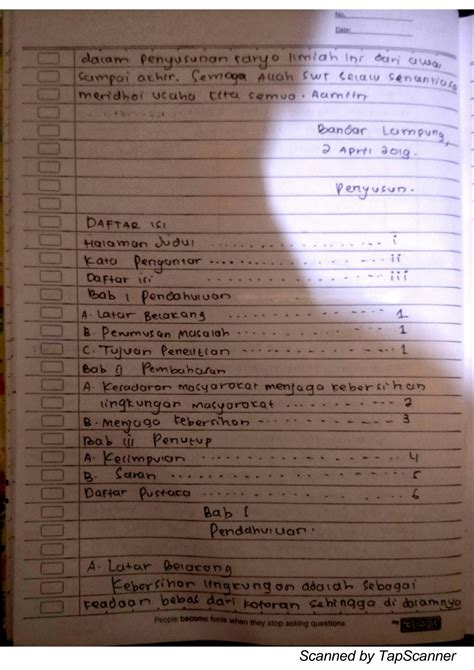 No.
Date:
dalam penyusunan karya ilmiah ini dari awal
sampai akhir. Semoga Allah SWT selalu senantiasa
meridhoi usaha kita semua. Aamiin
Bandar Lampung,
2 April 2019.
Penyusun.
DAFTAR ISI
Halaman Judul ................ i
Kata Pengantar ................ ii
Daftar isi ................ iii
Bab I Pendahuluan
A. Latar Belakang ................ 1
B. Perumusan Masalah ................ 1
C. Tujuan Penelitian ................ 1
Bab II Pembahasan
A. Kesadaran masyarakat menjaga kebersihan
lingkungan masyarakat ................ 2
B. menjaga kebersihan ................ 3
Bab III Penutup
A. Kesimpulan ................ 4
B. Saran ................ 5
Daftar Pustaca ................ 6
Bab I
Pendahuluan.
A. Latar Belakang
Kebersihan lingkungan adalah sebagai
keadaan bebas dari kotoran sehingga di dalamnya
People become fools when they stop asking questions
Scanned by TapScanner